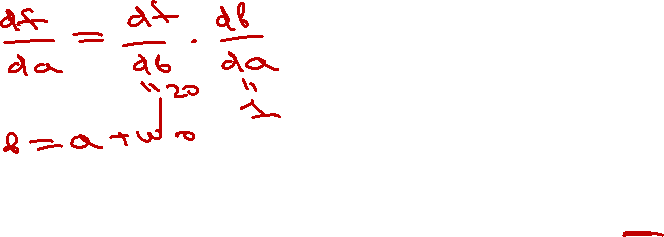 df/da = df/db · db/da
"20 "1
b = a + w0